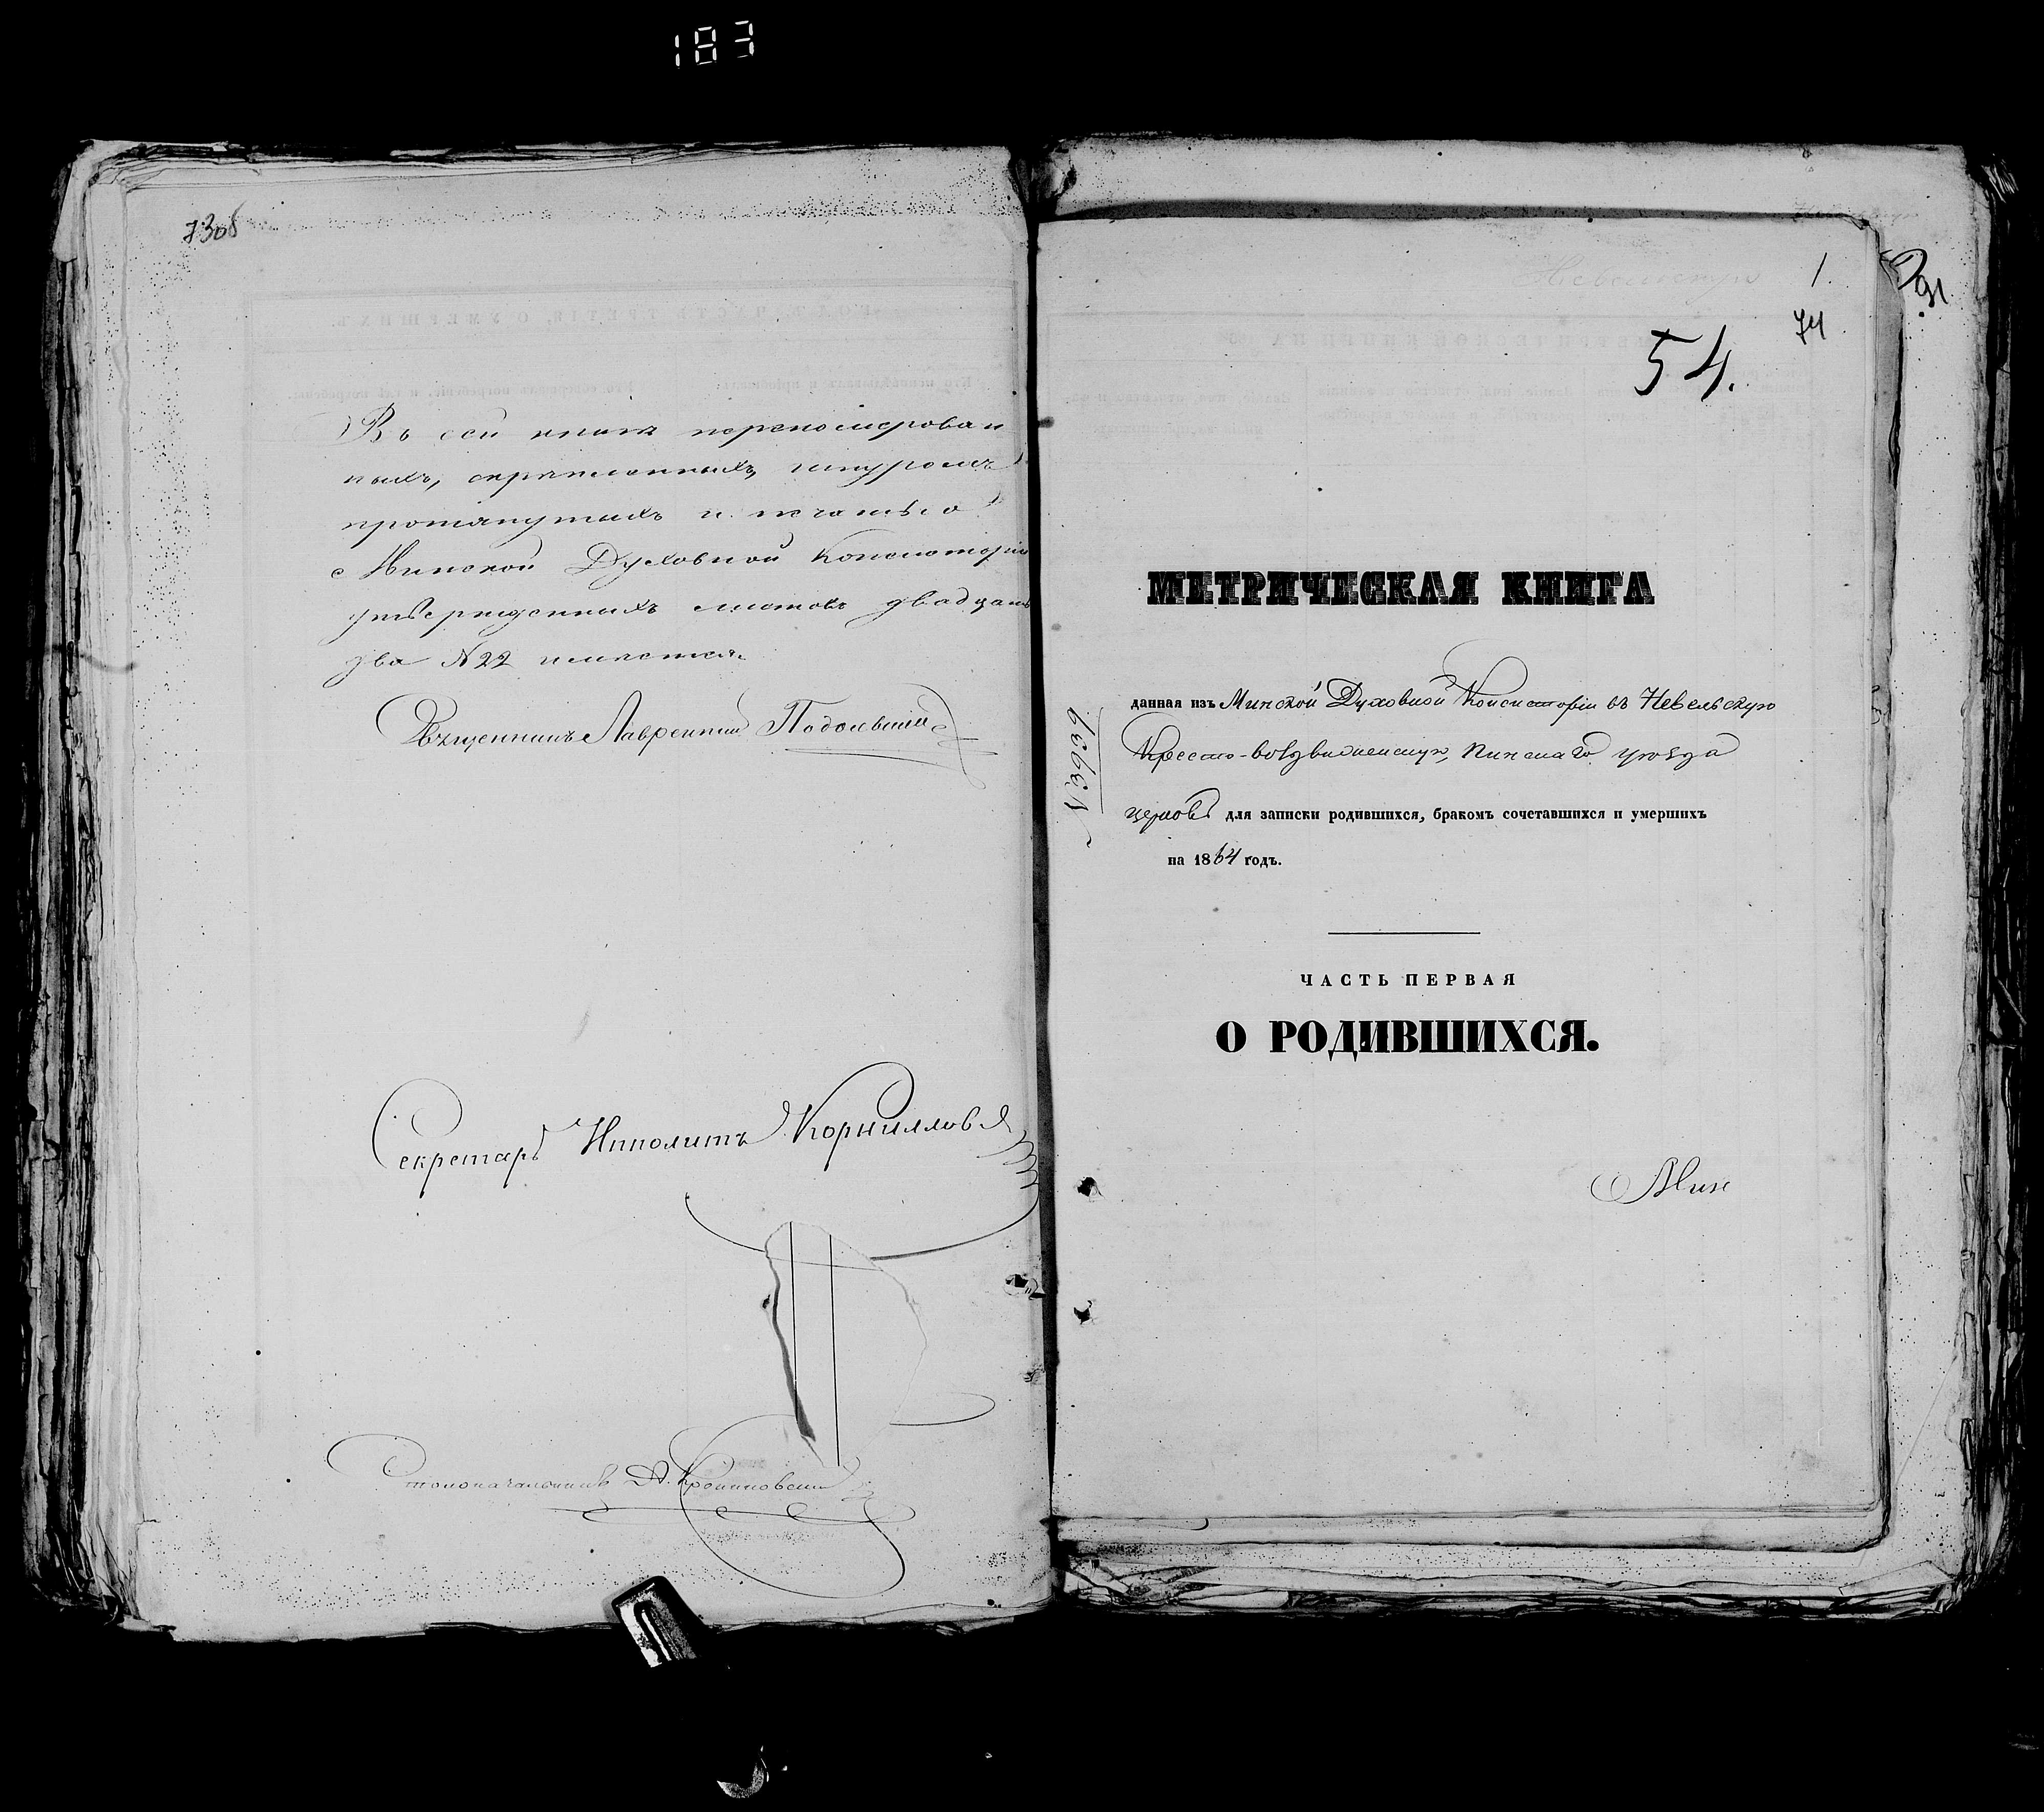 183
73об
Въ сей книгѣ переномерован
ныхъ, скрѣпленныхъ, шнуромъ
протянутыхъ и печатью
Минской Духовной Консисторіи
утвержденныхъ листовъ двадцать
два N 22 имѣется.
Священникъ Лаврентій
Секретарь Ипполитъ Корниловъ
Столоначальникъ А.
1.
74
91
54.
МЕТРИЧЕСКАЯ КНИГА
данная изъ Минской Духовной Консисторіи въ Невельскую
Кресто-воздвиженскую, Пинскаго уѣзда
церковь для записки родившихся, бракомъ сочетавшихся и умершихъ
на 1864 годъ.
N 3639
ЧАСТЬ ПЕРВАЯ
О РОДИВШИХСЯ.
Мин